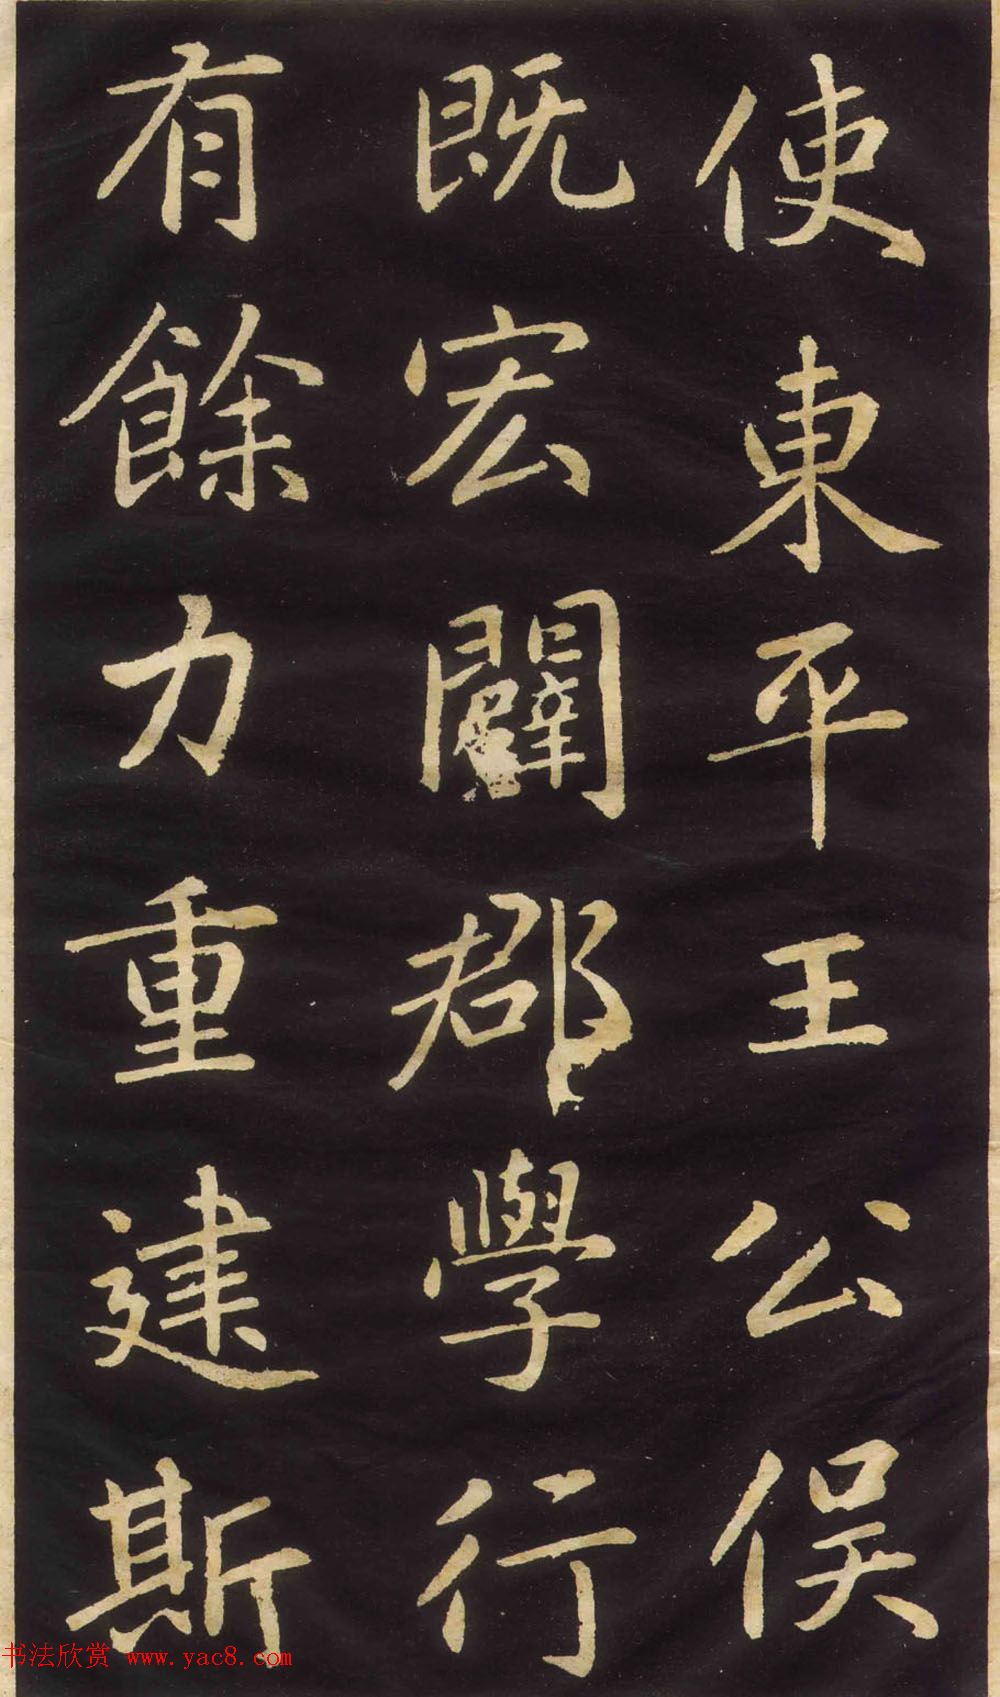 使東平王公俣
既宏闢郡學行
有餘力重建斯
书法欣赏 www.yac8.com